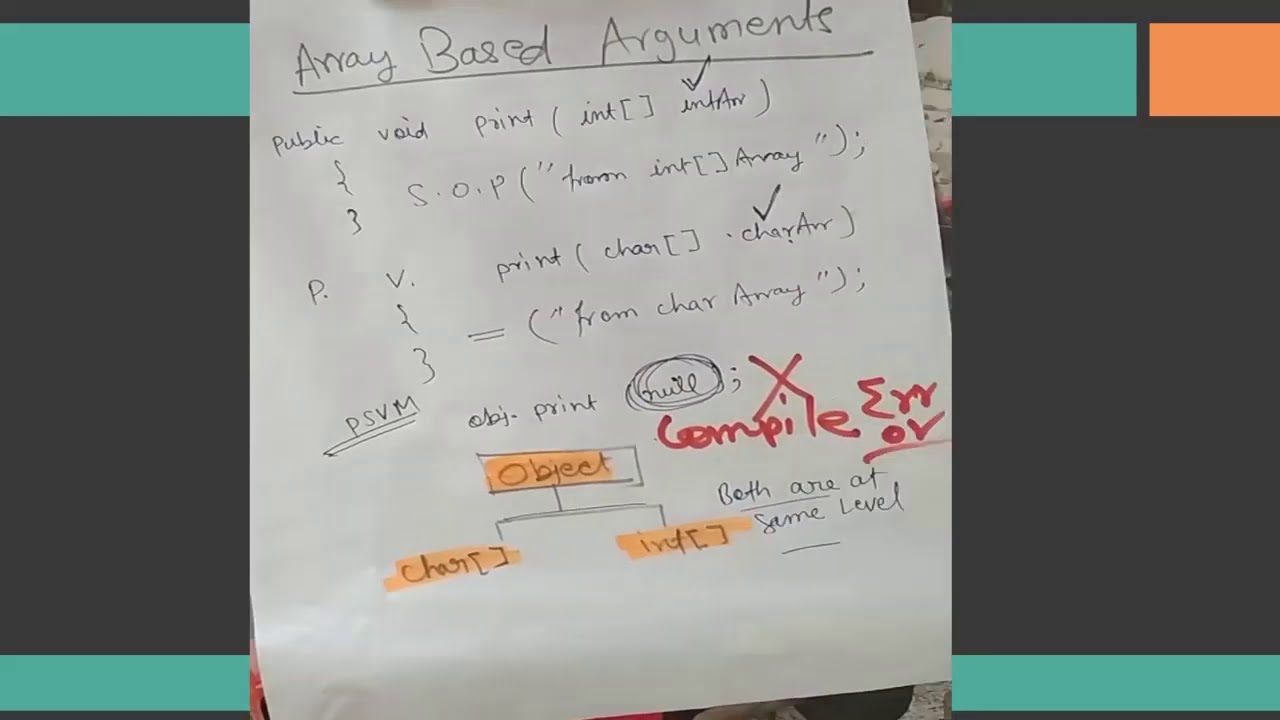 Array Based Arguments
public void print ( int[] intArr )
{ S.O.P ( "from int[] Array " );
}
P. V. print ( char[] charArr )
{ = ( "from char Array " );
}
PSVM obj. print (null ;
Compile Err
or
Object
Both are at
same Level
char[] int[]